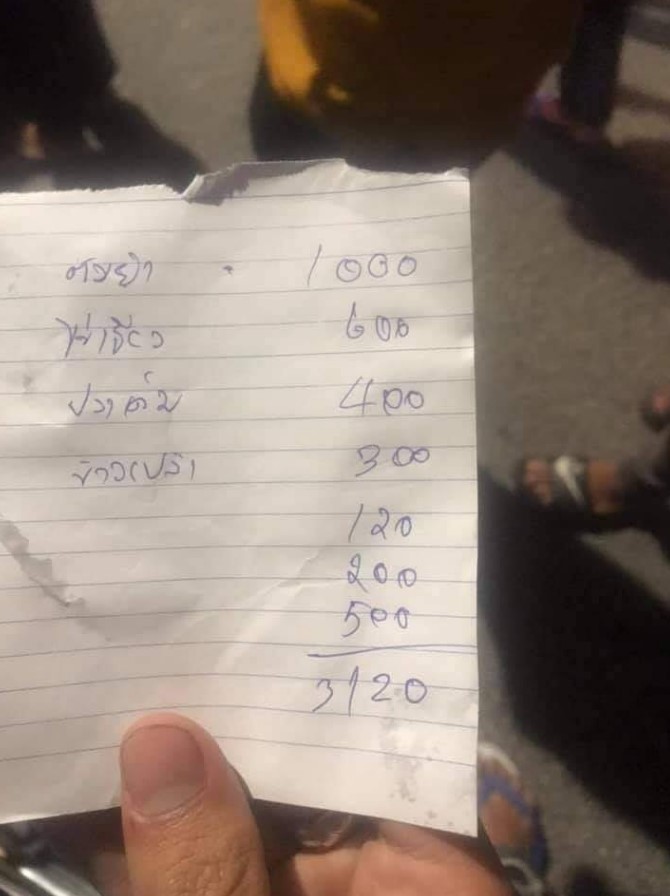 ต้มยำ - 1000
ไข่เจียว 600
ปลาต้ม 400
ข้าวเปล่า 300
120
200
500
3120